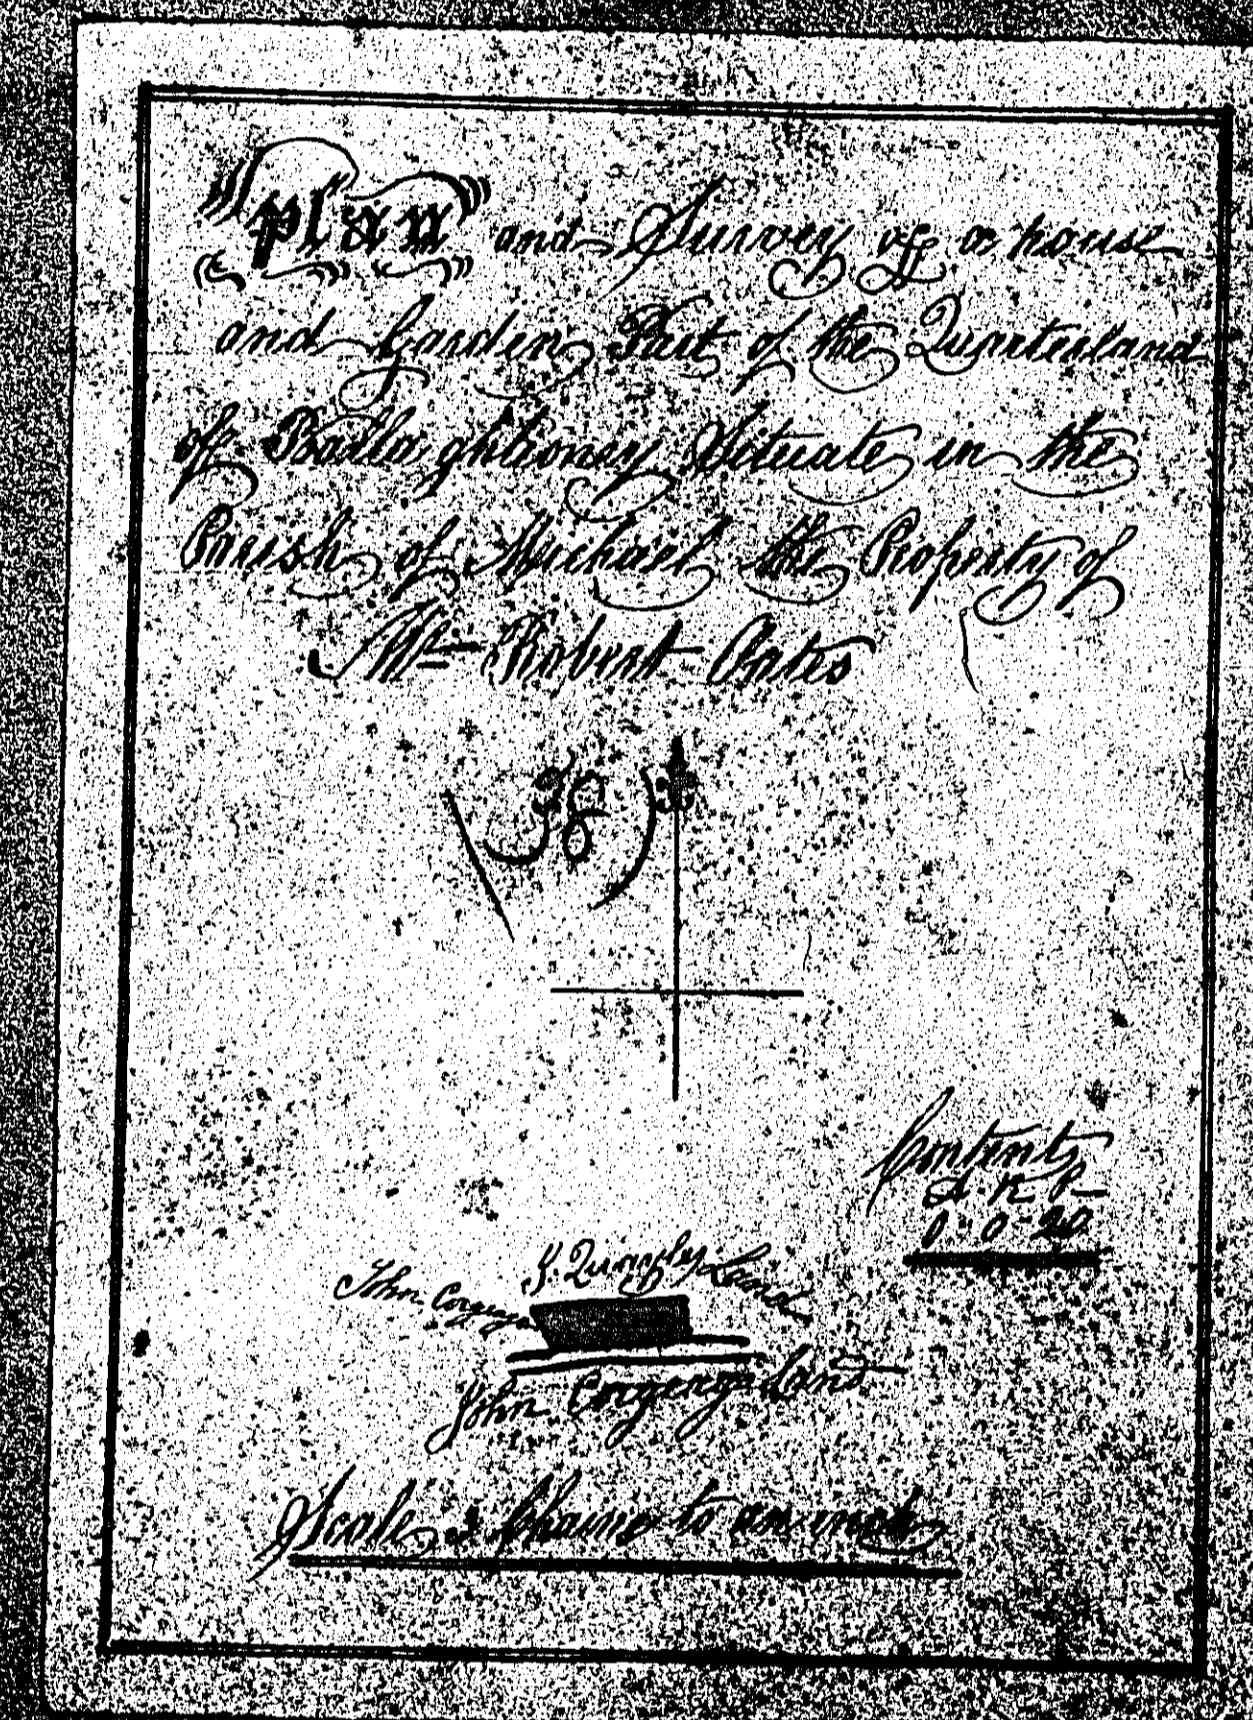 plan and Survey off a house
and Garden Part of the Quarterland
off Ballaghtioney Situate in the
Parish of Michael the Property of
Mr Robert Oates
38
Contents
A. R P
0 - 0 - 20
J. Quayles Land
John
John Land
Scale 2 Chains to an inch